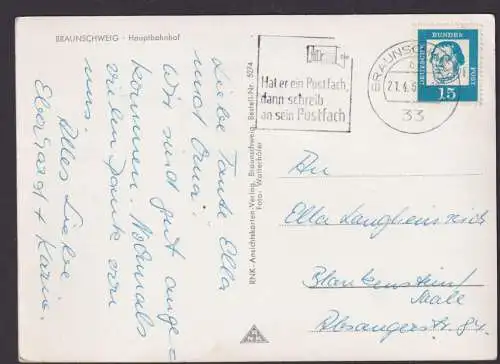 BRAUNSCHWEIG - Hauptbahnhof
Liebe Tante Ella
und Oma!
Wir sind gut ange-
kommen. Nochmals
vielen Dank von
uns.
Alles Liebe
Eberhardt + Karin.
RNK-Ansichtskarten-Verlag, Braunschweig, Bestell-Nr. 5074
Foto: Watterhöfer
Hat er ein Postfach,
dann schreib
an sein Postfach
BRAUNSCH
21.4.6
33
DEUTSCHE BUNDES POST
15
An
Ella Langheinrich
Blankenstein/
Saale
Absangerstr. 84.